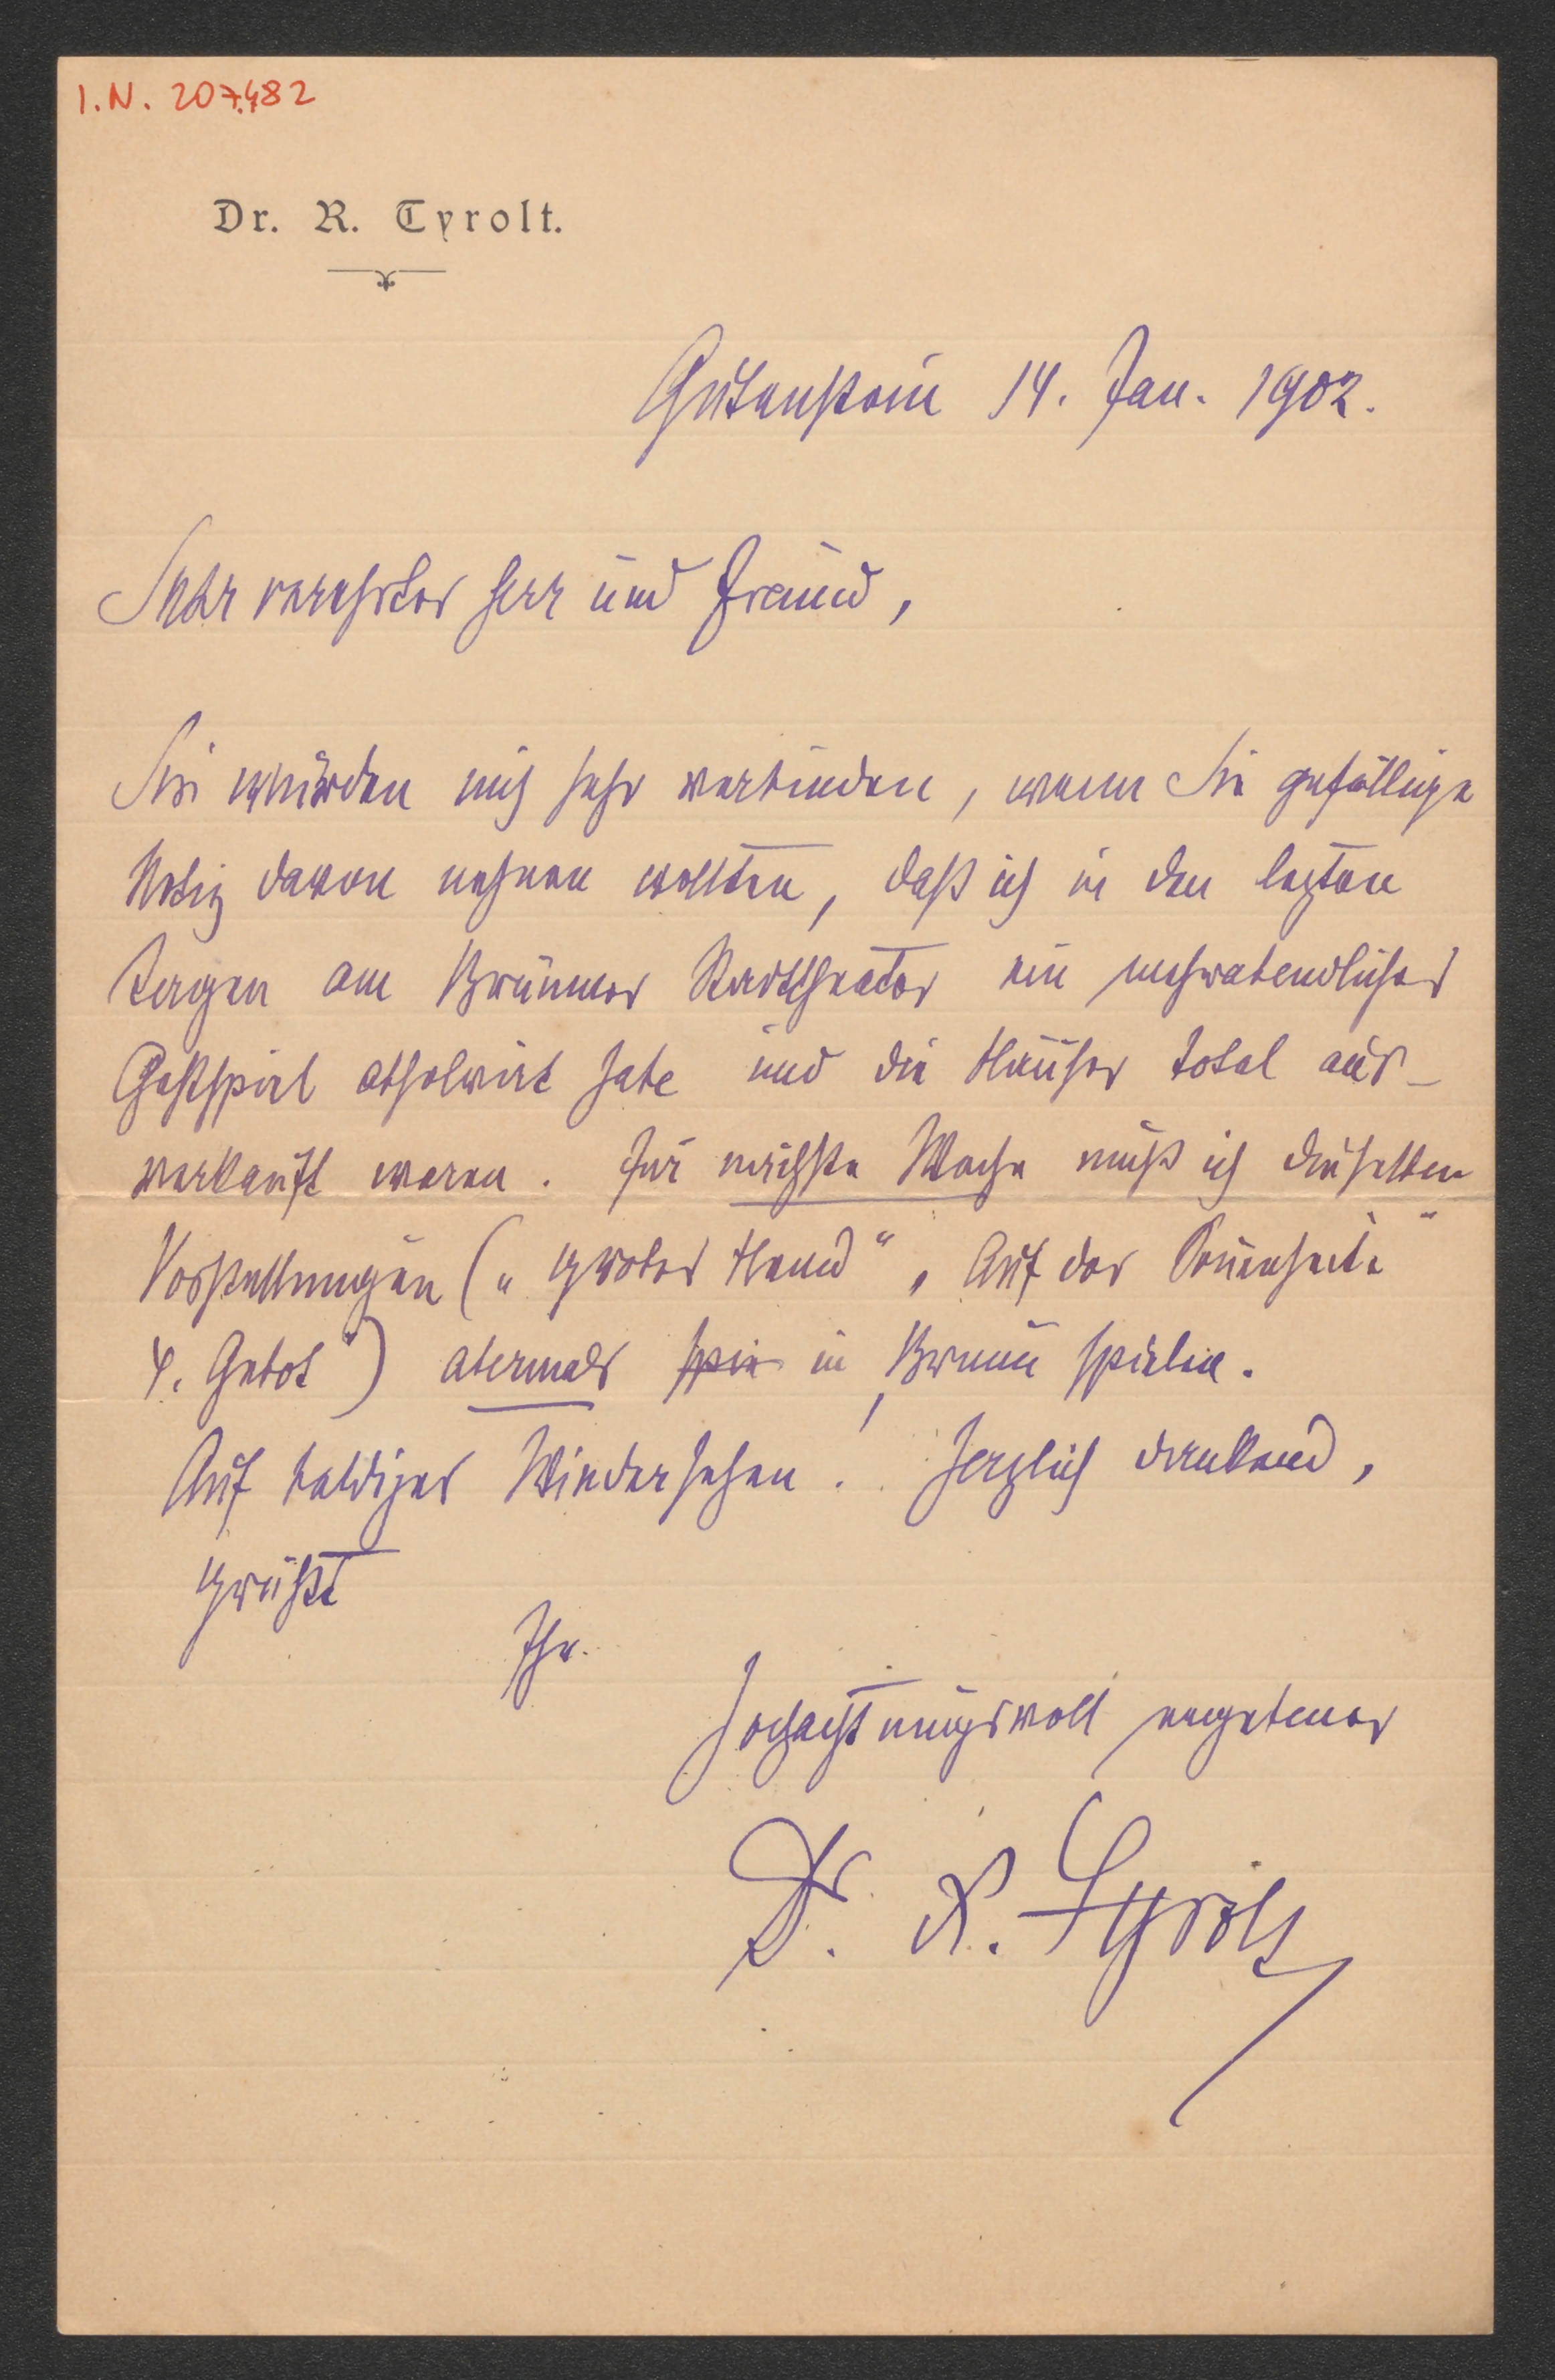 I.N. 207.482
Dr. R. Tyrolt.
Gutenstein 14. Jan. 1902.
Sehr verehrter Herr und Freund,
Sie würden mich sehr verbinden, wenn Sie gefällige
Notiz davon nehmen wollten, daß ich in den lezten
Tagen am Brünner Stadttheater ein mehrabendliches
Gastspiel absolvirt habe und die Häuser total aus-
verkauft waren. Für nächste Woche muß ich dieselben
Vorstellungen („grober Hemd“ „Auf der Sonnenseite“
4. Gebot“) abermals spie in Brünn spielen.
Auf baldiges Wiedersehen! Herzlich dankend,
grüßt
Ihr
hochachtungsvoll ergebener
Dr. R. Tyrolt